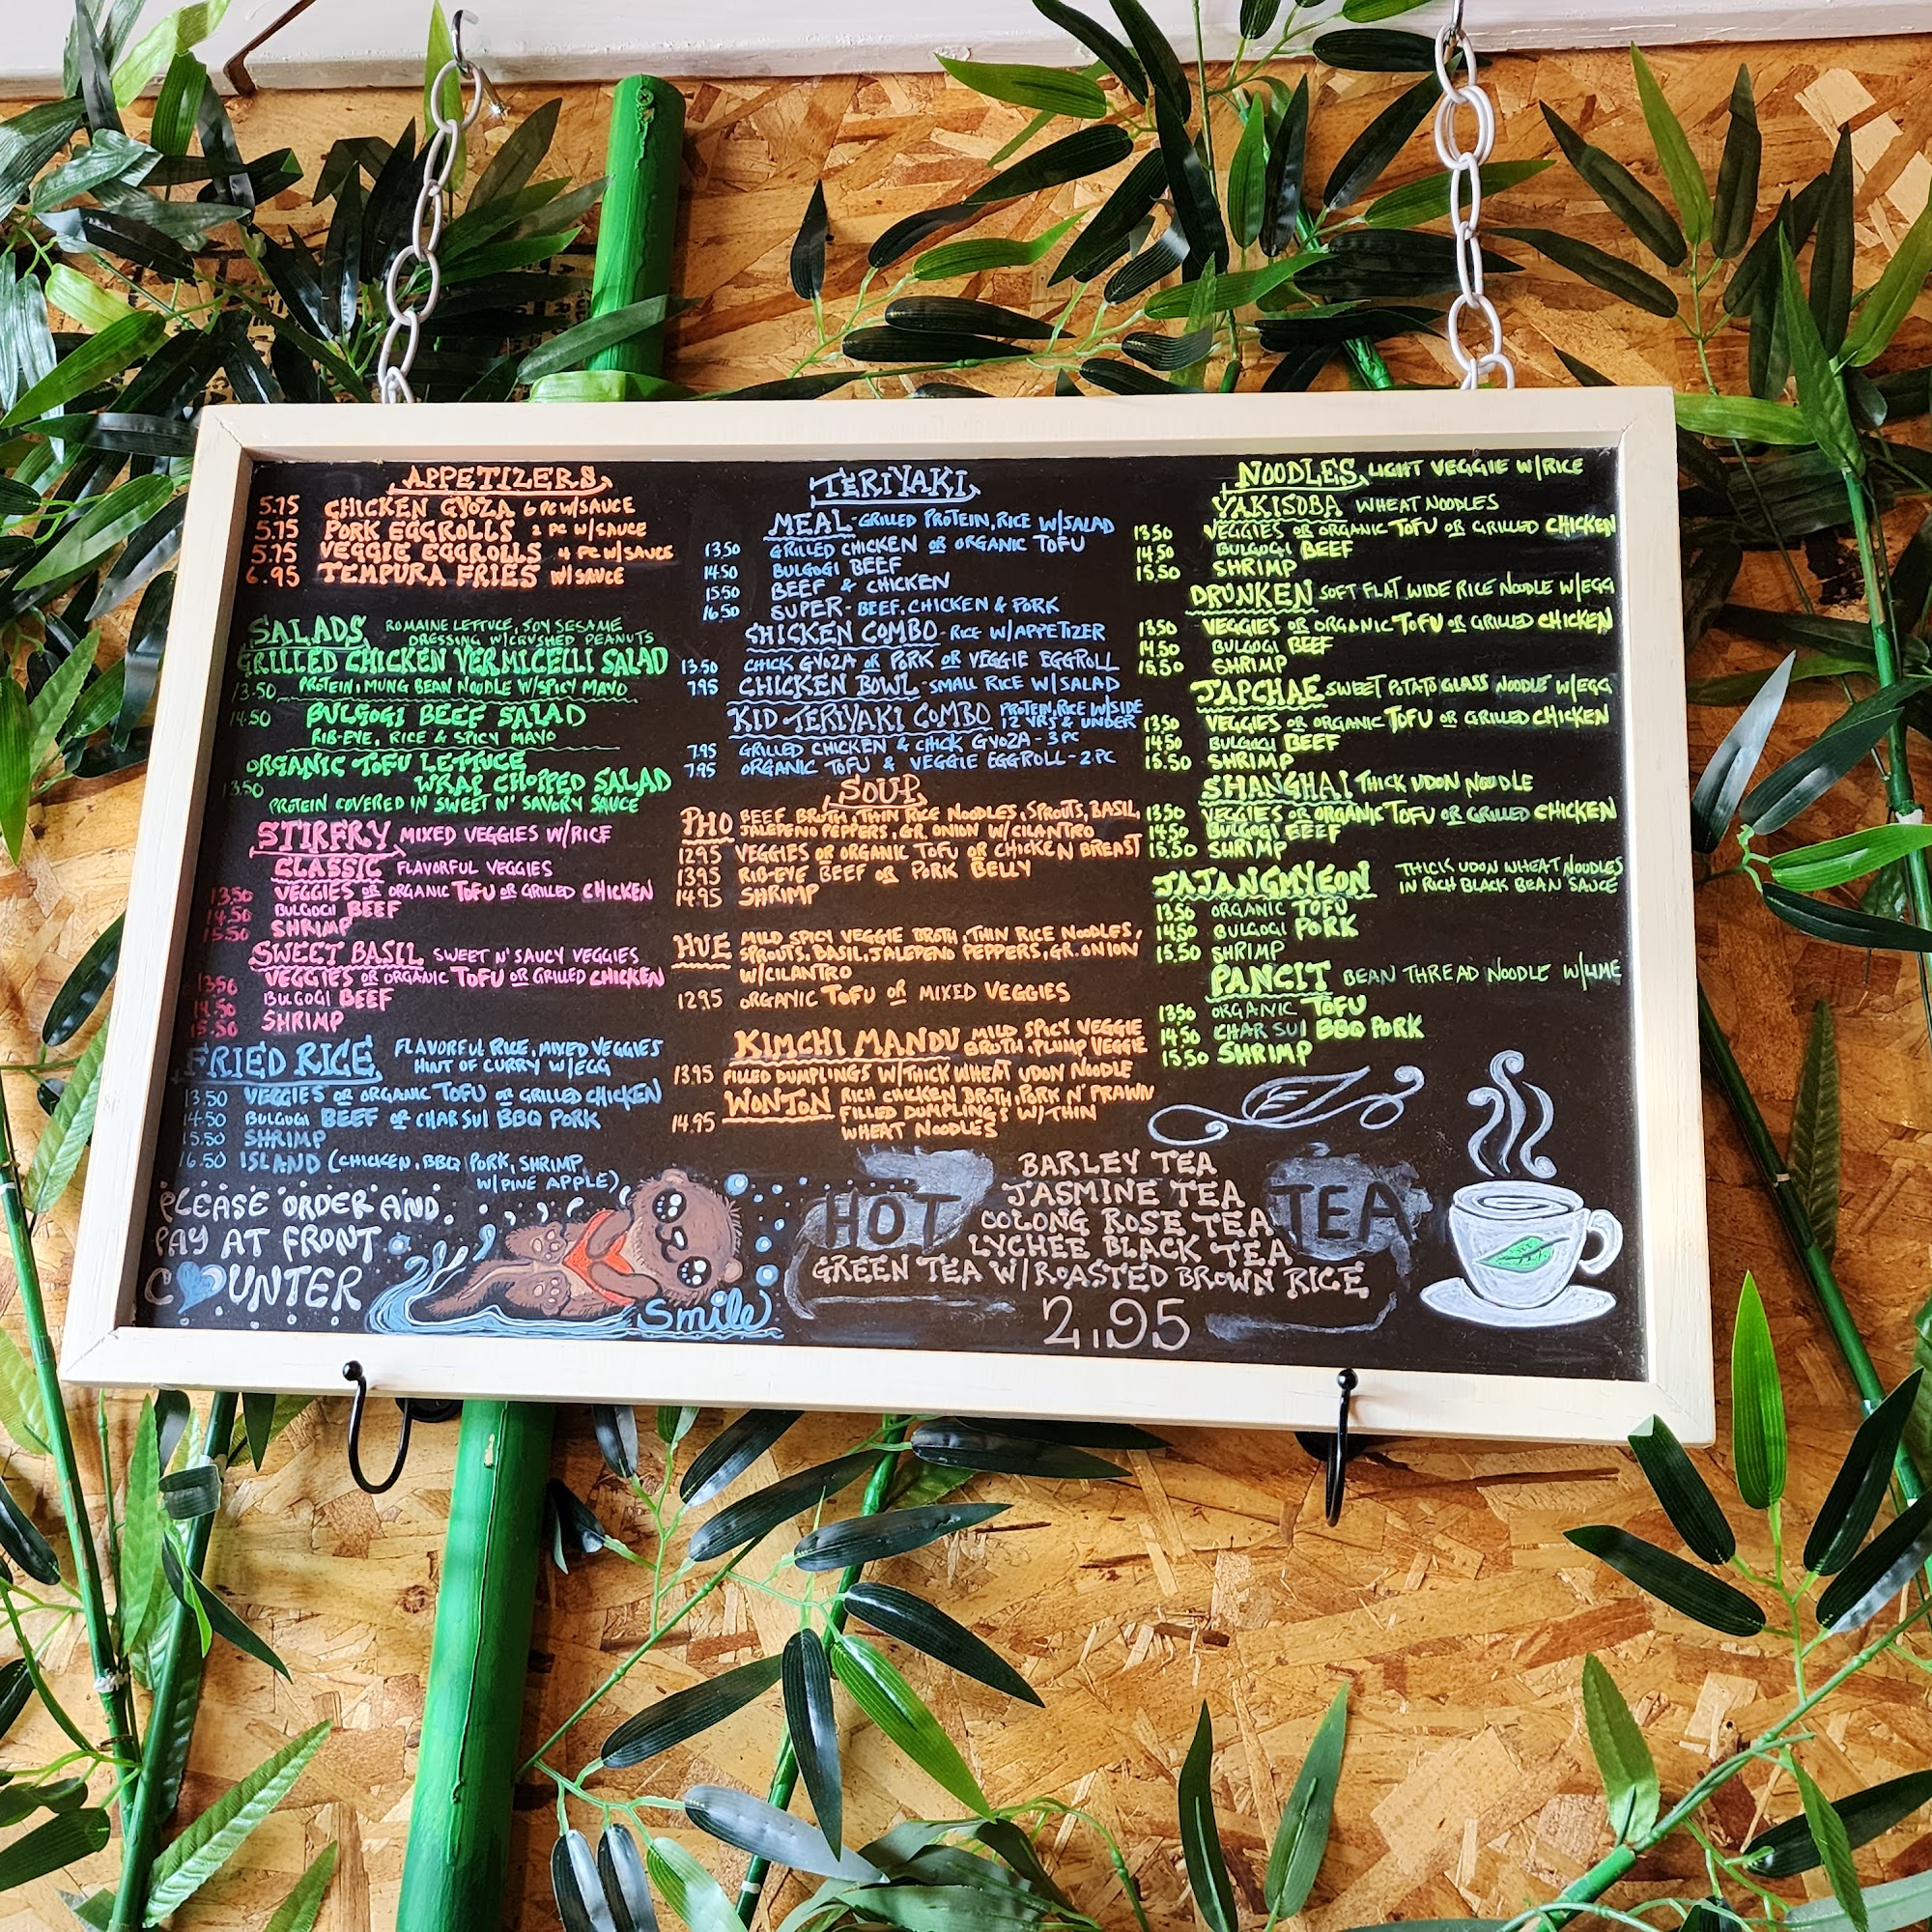 APPETIZERS
5.75 CHICKEN GYOZA 6 PC W/SAUCE
5.75 PORK EGGROLLS 2 PC W/SAUCE
5.75 VEGGIE EGGROLLS 4 PC W/SAUCE
6.95 TEMPURA FRIES W/SAUCE
SALADS ROMAINE LETTUCE, SOY SESAME
DRESSING W/CRUSHED PEANUTS
GRILLED CHICKEN VERMICELLI SALAD
13.50 PROTEIN, MUNG BEAN NOODLE W/SPICY MAYO
14.50 BULGOGI BEEF SALAD
RIB-EYE, RICE & SPICY MAYO
ORGANIC TOFU LETTUCE
13.50 WRAP CHOPPED SALAD
PROTEIN COVERED IN SWEET N' SAVORY SAUCE
STIRFRY MIXED VEGGIES W/RICE
CLASSIC FLAVORFUL VEGGIES
13.50 VEGGIES OR ORGANIC TOFU OR GRILLED CHICKEN
14.50 BULGOGI BEEF
15.50 SHRIMP
SWEET BASIL SWEET N' SAUCY VEGGIES
13.50 VEGGIES OR ORGANIC TOFU OR GRILLED CHICKEN
14.50 BULGOGI BEEF
15.50 SHRIMP
FRIED RICE FLAVORFUL RICE, MIXED VEGGIES
HINT OF CURRY W/EGG
13.50 VEGGIES OR ORGANIC TOFU OR GRILLED CHICKEN
14.50 BULGOGI BEEF OR CHAR SUI BBQ PORK
15.50 SHRIMP
16.50 ISLAND (CHICKEN, BBQ PORK, SHRIMP
W/PINE APPLE)
PLEASE ORDER AND
PAY AT FRONT
COUNTER
Smile
TERIYAKI
MEAL-GRILLED PROTEIN, RICE W/SALAD
13.50 GRILLED CHICKEN OR ORGANIC TOFU
14.50 BULGOGI BEEF
15.50 BEEF & CHICKEN
16.50 SUPER- BEEF, CHICKEN & PORK
CHICKEN COMBO-RICE W/APPETIZER
13.50 CHICK GYOZA OR PORK OR VEGGIE EGGROLL
7.95 CHICKEN BOWL-SMALL RICE W/SALAD
KID TERIYAKI COMBO PROTEIN, RICE W/SIDE
12 YRS & UNDER
7.95 GRILLED CHICKEN & CHICK GYOZA-3 PC
7.95 ORGANIC TOFU & VEGGIE EGGROLL-2 PC
SOUP
PHO BEEF BROTH, THIN RICE NOODLES, SPROUTS, BASIL,
JALEPENO PEPPERS, GR. ONION W/CILANTRO
12.95 VEGGIES OR ORGANIC TOFU OR CHICKEN BREAST
13.95 RIB-EYE BEEF OR PORK BELLY
14.95 SHRIMP
HUE MILD SPICY VEGGIE BROTH, THIN RICE NOODLES,
SPROUTS, BASIL, JALEPENO PEPPERS, GR. ONION
W/CILANTRO
12.95 ORGANIC TOFU OR MIXED VEGGIES
KIMCHI MANDU MILD SPICY VEGGIE
BROTH, PLUMP VEGGIE
13.95 FILLED DUMPLINGS W/THICK WHEAT UDON NOODLE
WONTON RICH CHICKEN BROTH, PORK N' PRAWN
14.95 FILLED DUMPLINGS W/THIN
WHEAT NOODLES
NOODLES, LIGHT VEGGIE W/RICE
YAKISOBA WHEAT NOODLES
13.50 VEGGIES OR ORGANIC TOFU OR GRILLED CHICKEN
14.50 BULGOGI BEEF
15.50 SHRIMP
DRUNKEN SOFT FLAT WIDE RICE NOODLE W/EGG
13.50 VEGGIES OR ORGANIC TOFU OR GRILLED CHICKEN
14.50 BULGOGI BEEF
15.50 SHRIMP
JAPCHAE SWEET POTATO GLASS NOODLE W/EGG
13.50 VEGGIES OR ORGANIC TOFU OR GRILLED CHICKEN
14.50 BULGOGI BEEF
15.50 SHRIMP
SHANGHAI THICK UDON NOODLE
13.50 VEGGIES OR ORGANIC TOFU OR GRILLED CHICKEN
14.50 BULGOGI BEEF
15.50 SHRIMP
JAJANGMYEON THICK UDON WHEAT NOODLES
IN RICH BLACK BEAN SAUCE
13.50 ORGANIC TOFU
14.50 BULGOGI PORK
15.50 SHRIMP
PANCIT BEAN THREAD NOODLE W/LIME
13.50 ORGANIC TOFU
14.50 CHAR SUI BBQ PORK
15.50 SHRIMP
HOT TEA
BARLEY TEA
JASMINE TEA
OOLONG ROSE TEA
LYCHEE BLACK TEA
GREEN TEA W/ROASTED BROWN RICE
2.95